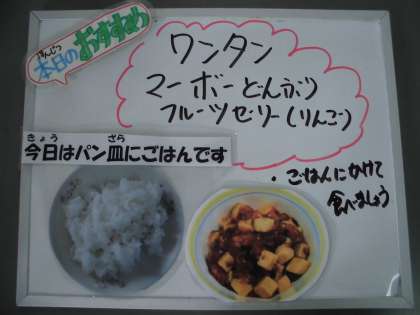 ほんじつ
本日のおすすめ
ワンタン
マーボーどんぶり
フルーツゼリー(りんご)
きょう さら
今日はパン皿にごはんです
・ごはんにかけて
食べましょう